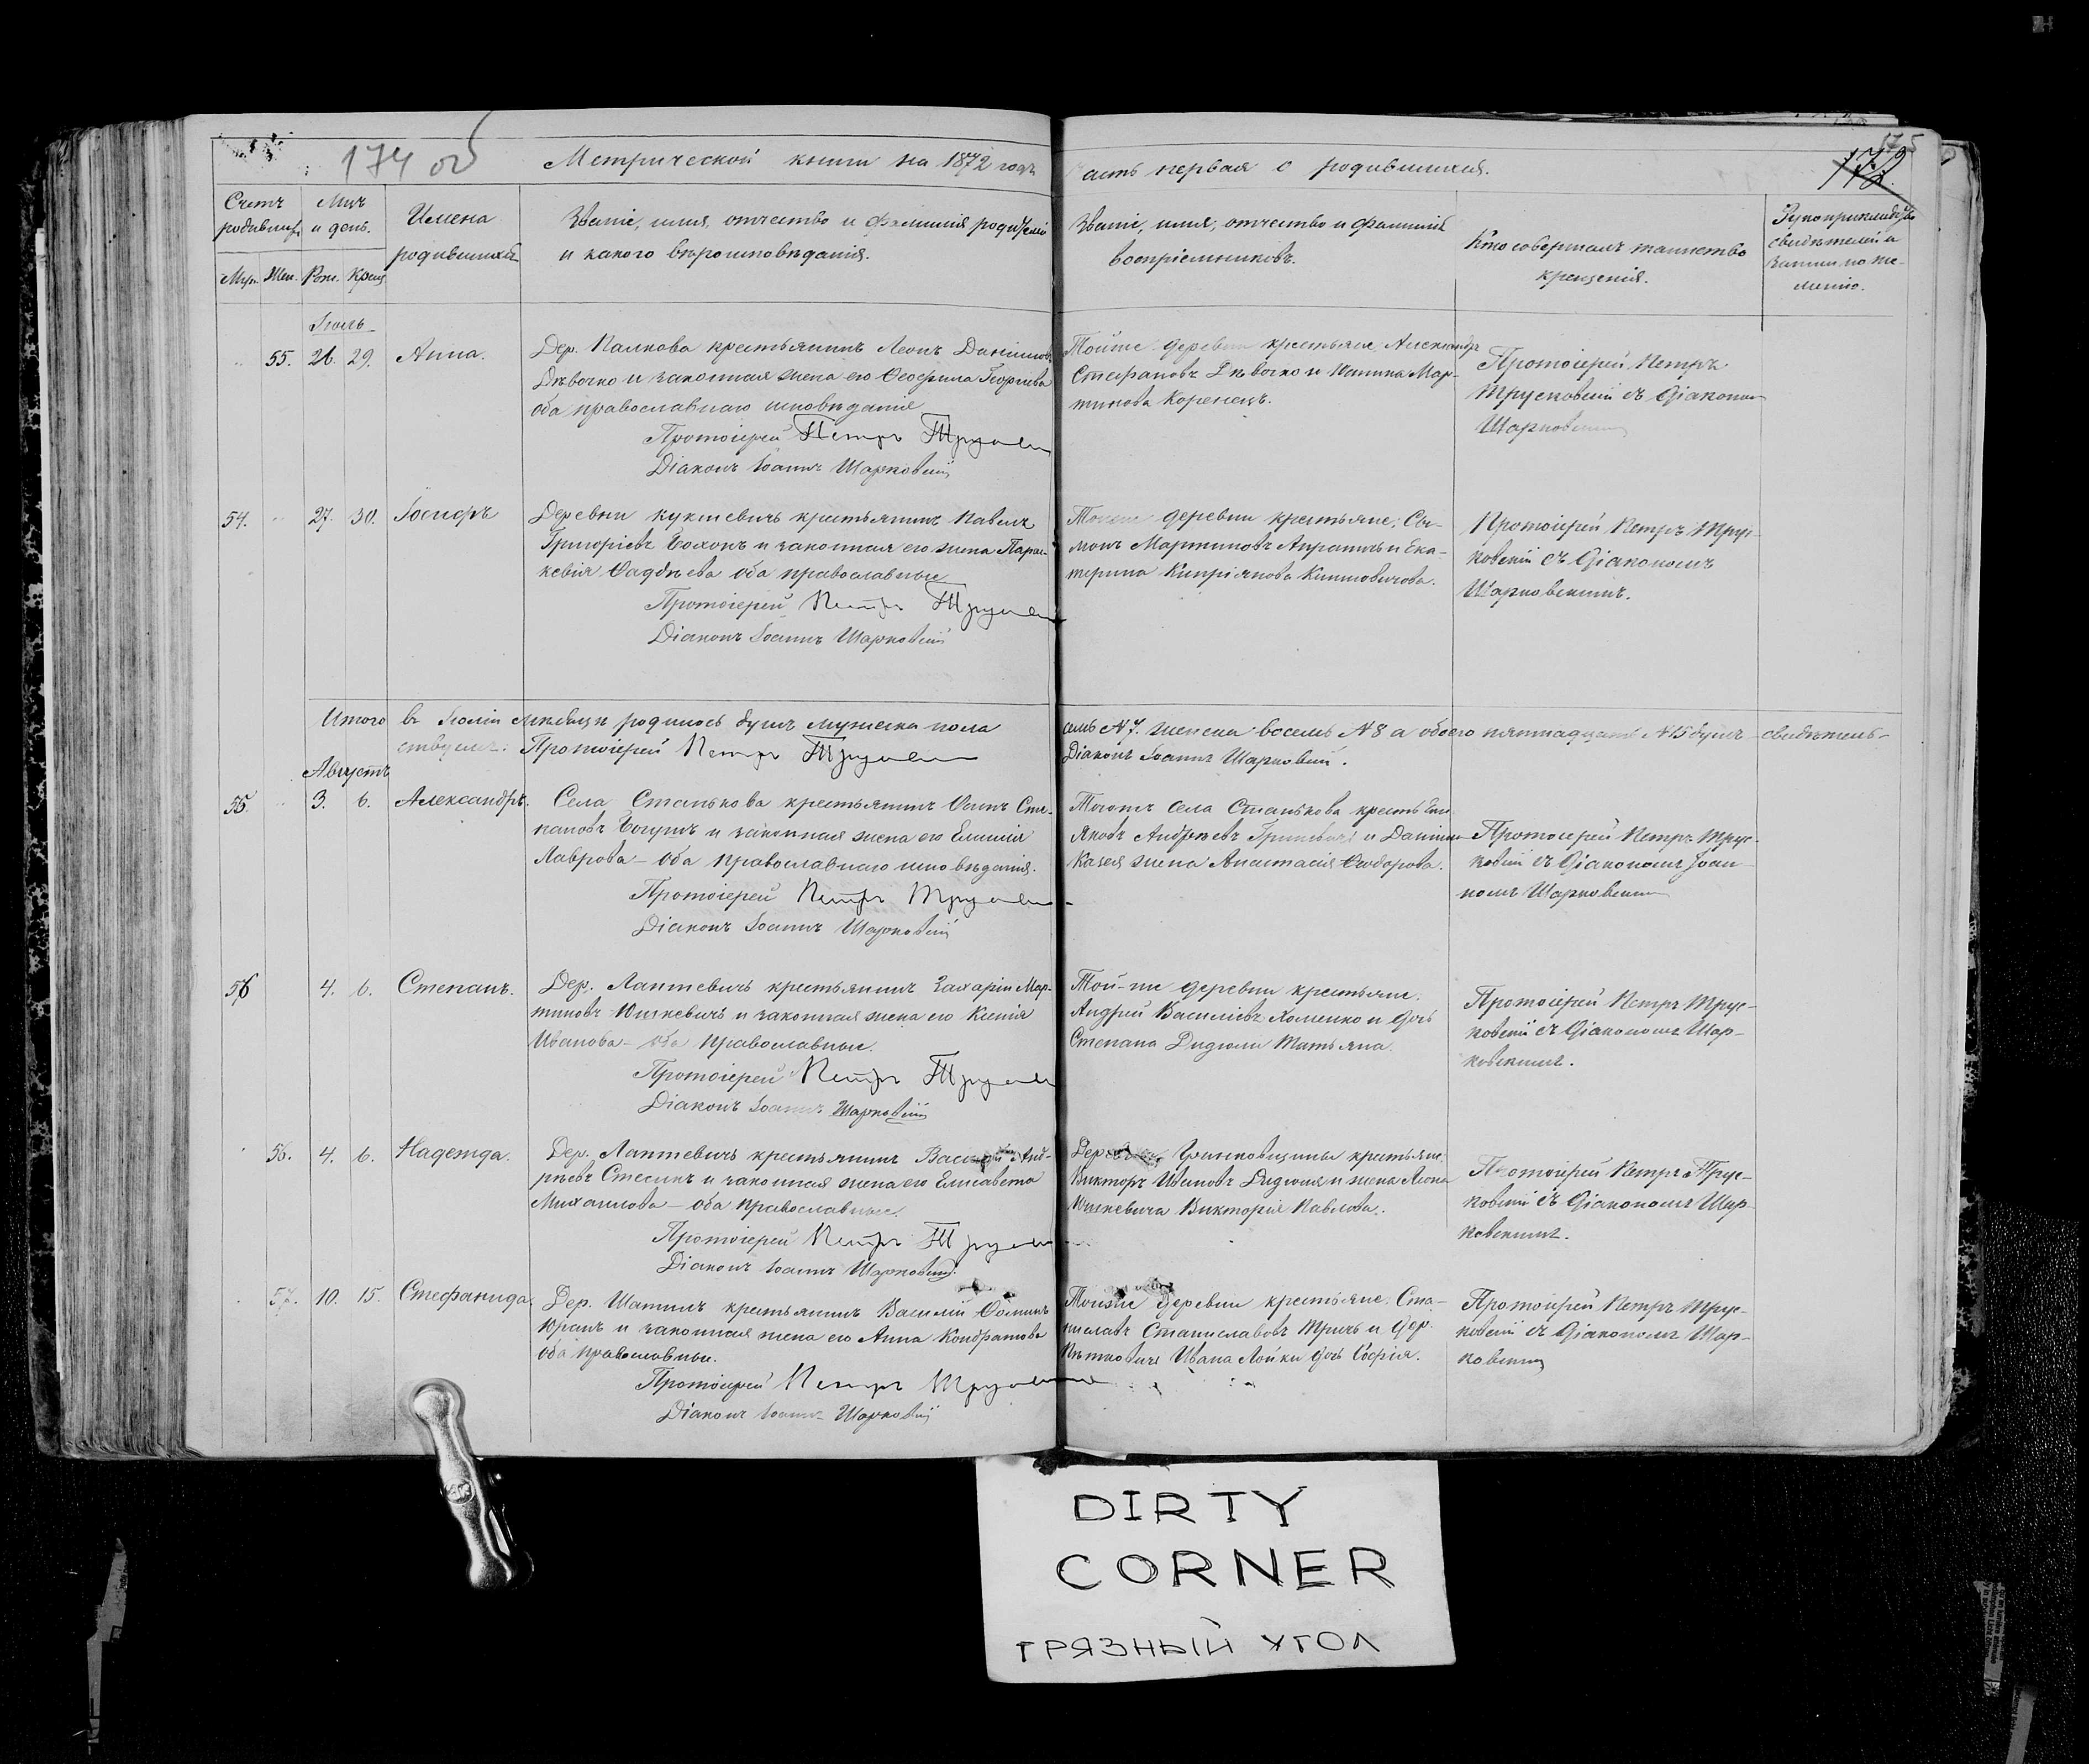 174 об
175
Метрической книги на 1872 годъ
асть первая о родившихся.
Счетъ родивших.
Муж. Жен.
Мцъ и день.
Рож. Крещ.
Имена
родившихся
Званіе, имя, отчество и фамилія родителей
и какого вѣроисповѣданія.
Званіе, имя, отчество и фамилія
воспріемниковъ.
Кто совершалъ таинство
крещенія.
Рукоприкладство
свидѣтелей
Іюль
55. 26. 29. Анна.
Дер. Палкова крестьянинъ Леонъ Даниловъ
Дѣвочко и законная жена его Ѳеофила Георгіева
оба православнаго исповѣданія
Протоіерей Петръ
Діаконъ Іоаннъ Шарковскій
Тойже деревни крестьяне Александръ
Стефановъ Дѣвочко и Мар-
тинова Коренецъ.
Протоіерей Петръ
Трусковскій съ Діакономъ
Шарковскимъ
54. 27. 30. Іосифъ
Деревни Кукшевичъ крестьянинъ Павелъ
Григоріевъ и законная его жена Парас-
кевія Фаддѣева оба православные
Протоіерей Петръ
Діаконъ Іоаннъ Шарковскій
Тойже деревни крестьяне: Си-
монъ Мартиновъ и Ека-
терина Кипріянова
Протоіерей Петръ Трус-
ковскій съ Діакономъ
Шарковскимъ.
Итого въ Іюлѣ мѣсяцѣ родилось душъ мужеска пола
семь №7. женска восемь №8 а обоего пятнадцать №15 душъ свидѣтель-
ствуемъ: Протоіерей Петръ
Діаконъ Іоаннъ Шарковскій.
Августъ
55. 3. 6. Александръ.
Села Станькова крестьянинъ Сте-
пановъ и законная жена его Емилія
Лаврова - оба православнаго исповѣданія.
Протоіерей Петръ
Діаконъ Іоаннъ Шарковскій
Тогожъ села Станькова крестьяне
Яковъ Андреевъ Гриневичъ и Даніила
жена Анастасія Ѳеодорова.
Протоіерей Петръ Трус-
ковскій съ Діакономъ Іоан-
номъ Шарковскимъ
56 4. 6. Степанъ.
Дер. Лаптевичъ крестьянинъ Захарія Мар-
тиновъ Юшкевичъ и законная жена его Ксенія
Иванова - оба православные.
Протоіерей Петръ
Діаконъ Іоаннъ Шарковскій
Той-же деревни крестьяне:
Андрей Васильевъ Хоменко и дочь
Степана Дидюли Татьяна.
Протоіерей Петръ Трус-
ковскій съ Діакономъ Шар-
ковскимъ.
56. 4. 6. Надежда.
Дер. Лаптевичъ крестьянинъ Василій Анд-
реевъ и законная жена его Елисавета
Михаилова - оба православные.
Протоіерей Петръ
Діаконъ Іоаннъ Шарковскій.
крестьяне:
Викторъ Ивановъ Дидюля и жена Леона
Юшкевича Викторія Павлова.
Протоіерей Петръ Трус-
ковскій съ Діакономъ Шар-
ковскимъ.
57. 10. 15. Стефанида.
Дер. крестьянинъ Василій Ѳоминъ
Юранъ и законная жена его Анна Кондратова
оба православные.
Протоіерей Петръ
Діаконъ Іоаннъ Шарковскій
Тойже деревни крестьяне: Ста-
ниславъ Станиславовъ и дер.
Ивана Лойки дочь Софія.
Протоіерей Петръ Трус-
ковскій съ Діакономъ Шар-
ковскимъ
DIRTY
CORNER
ГРЯЗНЫЙ УГОЛ